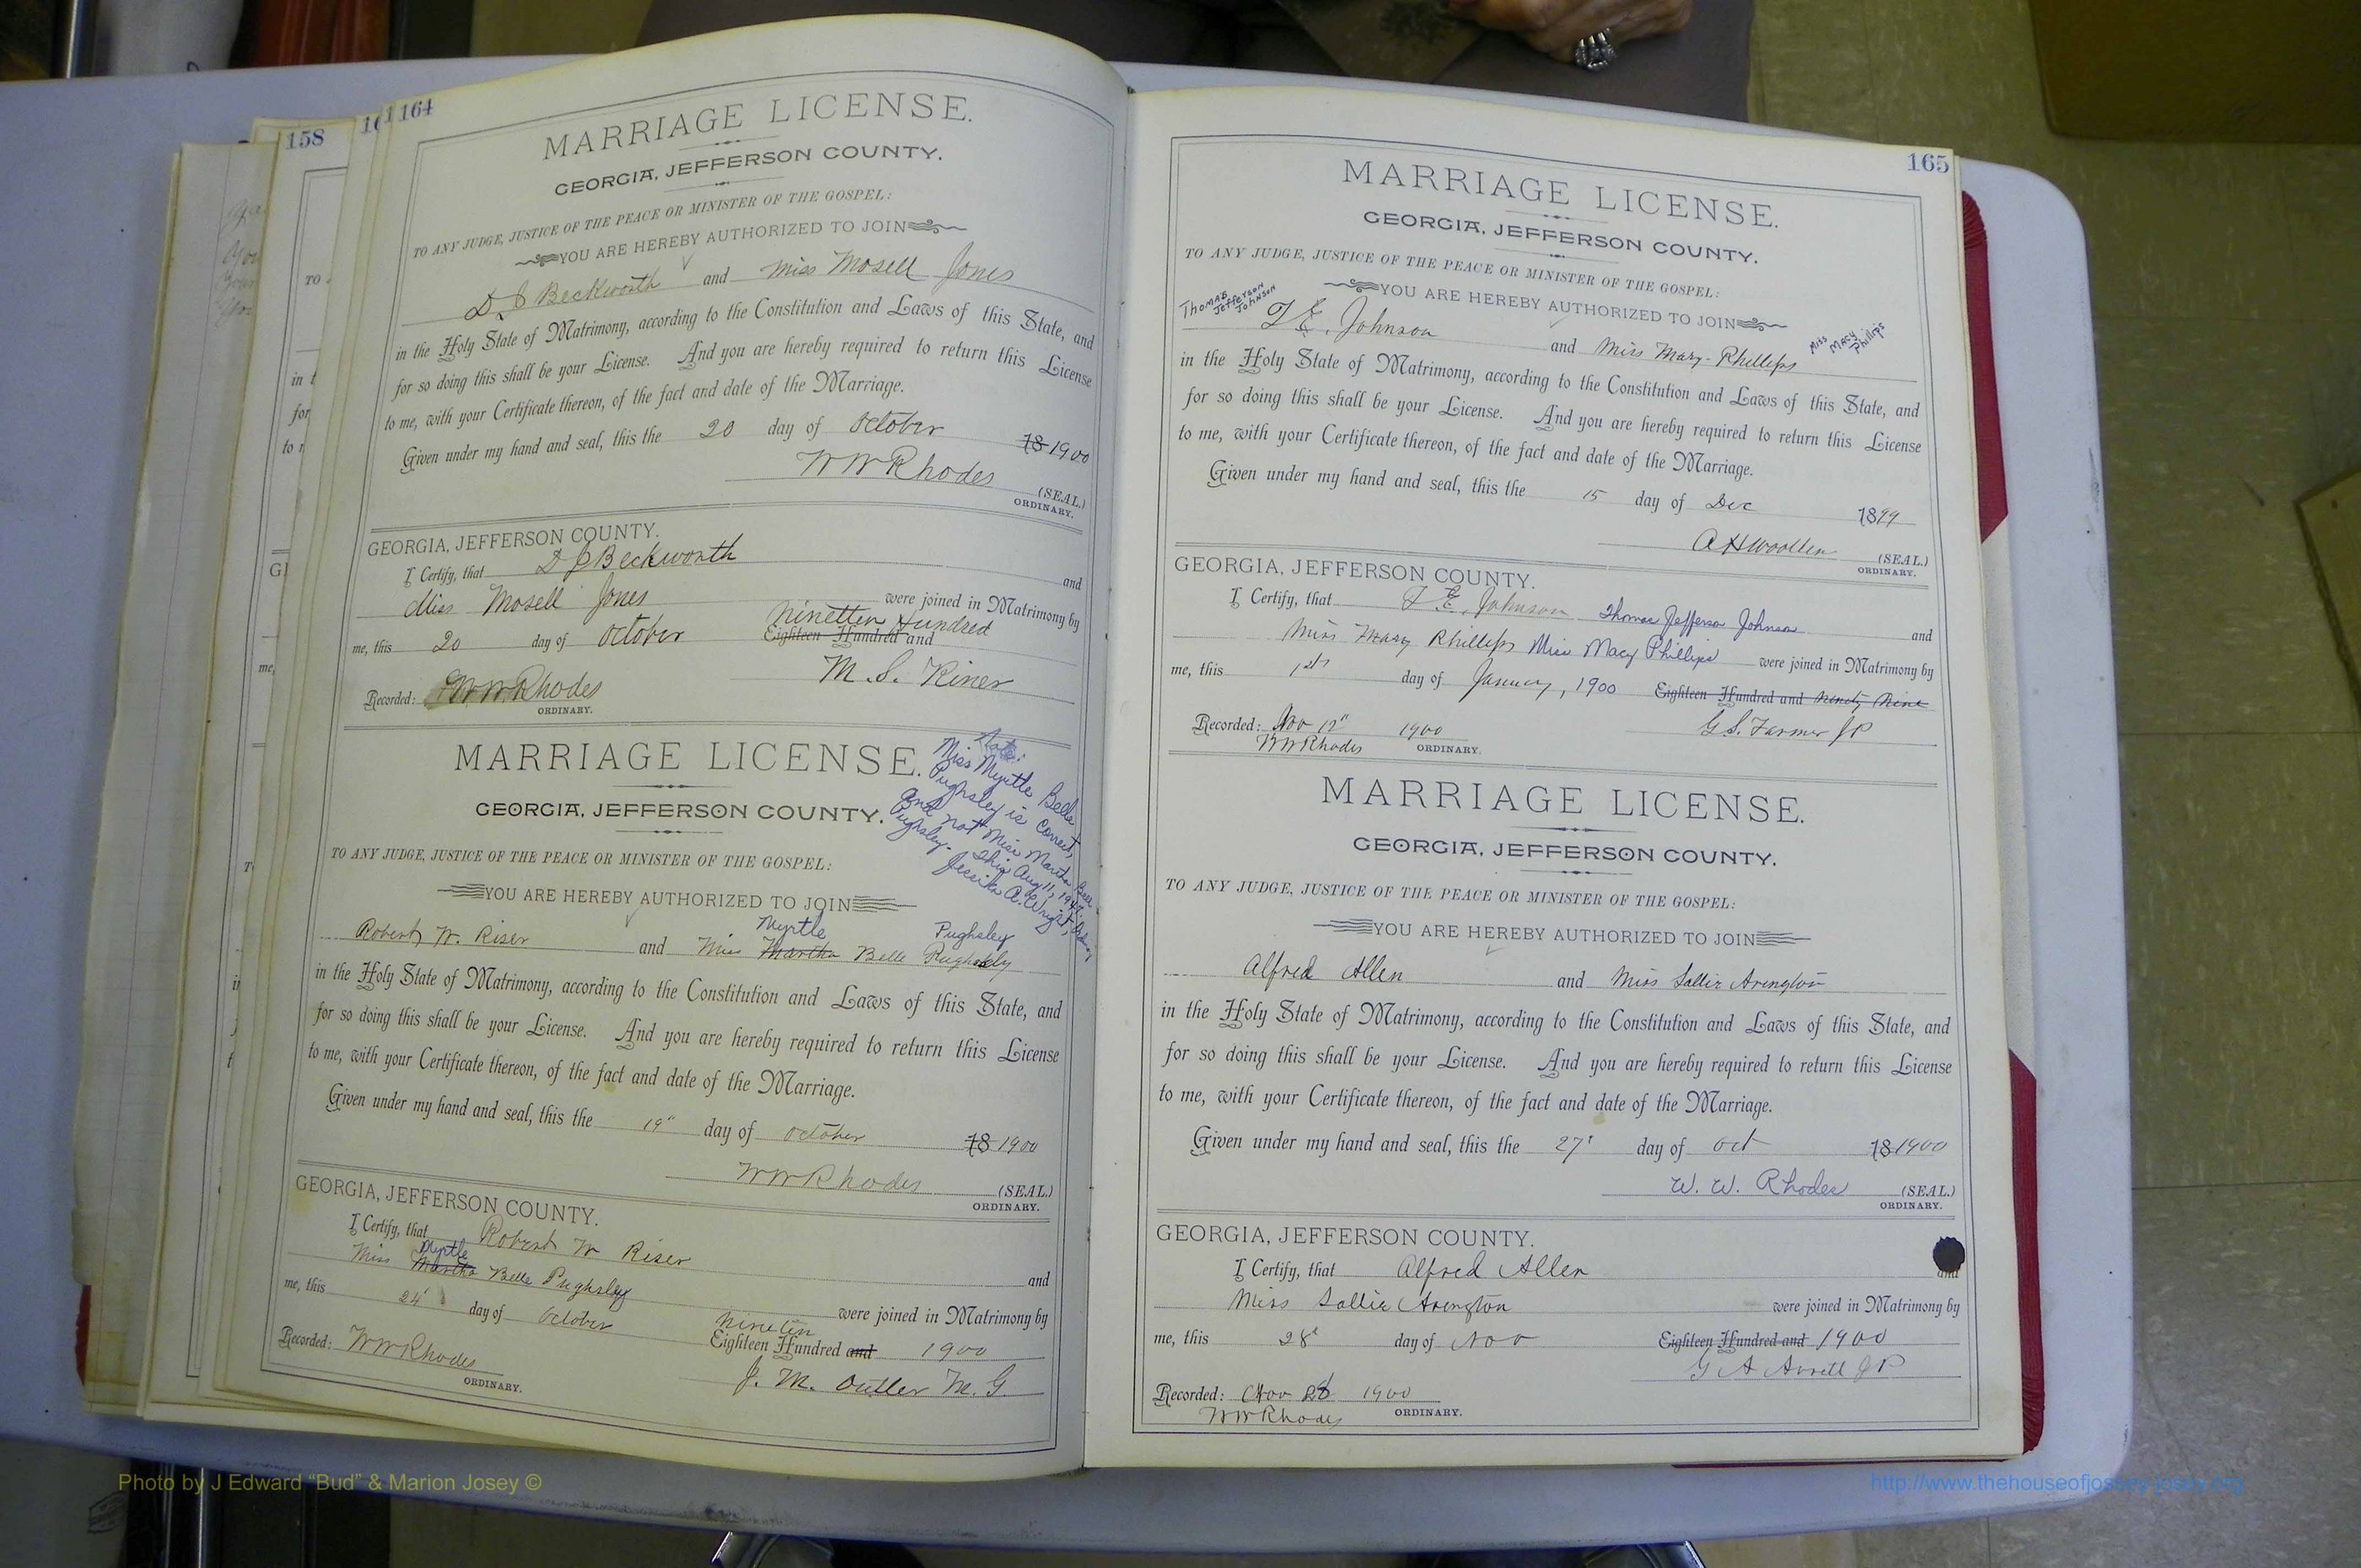 158
164
MARRIAGE LICENSE.
GEORGIA, JEFFERSON COUNTY.
TO ANY JUDGE, JUSTICE OF THE PEACE OR MINISTER OF THE GOSPEL:
YOU ARE HEREBY AUTHORIZED TO JOIN
D J Beckworth and Miss Mosell Jones
in the Holy State of Matrimony, according to the Constitution and Laws of this State, and
for so doing this shall be your License. And you are hereby required to return this License
to me, with your Certificate thereon, of the fact and date of the Marriage.
Given under my hand and seal, this the 20 day of October 18 1900
W W Rhodes (SEAL.)
ORDINARY.
GEORGIA, JEFFERSON COUNTY.
I Certify, that D J Beckworth and
Miss Mosell Jones were joined in Matrimony by
Ninetten Hundred
me, this 20 day of October Eighteen Hundred and
M. S. Kiner
Recorded: W W Rhodes
ORDINARY.
MARRIAGE LICENSE.
Note:
Miss Myrtle Belle
Pughsley is correct,
and not Miss Martha Belle
Pughsley. This Aug 11, 194
A. Wright,
GEORGIA, JEFFERSON COUNTY.
TO ANY JUDGE, JUSTICE OF THE PEACE OR MINISTER OF THE GOSPEL:
YOU ARE HEREBY AUTHORIZED TO JOIN
Myrtle Pughsley
Robert W. Riser and Miss Martha Belle Pughsely
in the Holy State of Matrimony, according to the Constitution and Laws of this State, and
for so doing this shall be your License. And you are hereby required to return this License
to me, with your Certificate thereon, of the fact and date of the Marriage.
Given under my hand and seal, this the 19" day of October 18 1900
W W Rhodes (SEAL.)
ORDINARY.
GEORGIA, JEFFERSON COUNTY.
I Certify, that Robert W Riser
Myrtle
Miss Martha Belle Pughsley and
were joined in Matrimony by
nineteen
me, this 24' day of October Eighteen Hundred and 1900
J. M. Outler M. G.
Recorded: W W Rhodes
ORDINARY.
165
MARRIAGE LICENSE.
GEORGIA, JEFFERSON COUNTY.
TO ANY JUDGE, JUSTICE OF THE PEACE OR MINISTER OF THE GOSPEL:
YOU ARE HEREBY AUTHORIZED TO JOIN
Thomas Jefferson Johnson
T E. Johnson and Miss Mary Phillips Miss Macy Phillips
in the Holy State of Matrimony, according to the Constitution and Laws of this State, and
for so doing this shall be your License. And you are hereby required to return this License
to me, with your Certificate thereon, of the fact and date of the Marriage.
Given under my hand and seal, this the 15 day of Dec 1899
(SEAL.)
ORDINARY.
GEORGIA, JEFFERSON COUNTY.
I Certify, that T E. Johnson Thomas Jefferson Johnson and
Miss Mary Phillips Miss Macy Phillips were joined in Matrimony by
me, this 1st day of January, 1900 Eighteen Hundred and Ninety Nine
G S. Farmer J P
Recorded: Nov 12" 1900
W W Rhodes ORDINARY.
MARRIAGE LICENSE.
GEORGIA, JEFFERSON COUNTY.
TO ANY JUDGE, JUSTICE OF THE PEACE OR MINISTER OF THE GOSPEL:
YOU ARE HEREBY AUTHORIZED TO JOIN
Alfred Allen and Miss Sallie Arington
in the Holy State of Matrimony, according to the Constitution and Laws of this State, and
for so doing this shall be your License. And you are hereby required to return this License
to me, with your Certificate thereon, of the fact and date of the Marriage.
Given under my hand and seal, this the 27' day of Oct 18 1900
W. W. Rhodes (SEAL.)
ORDINARY.
GEORGIA, JEFFERSON COUNTY.
I Certify, that Alfred Allen and
Miss Sallie Arington were joined in Matrimony by
me, this 28' day of Nov Eighteen Hundred and 1900
G A Avrett J P
Recorded: Nov 28 1900
W W Rhodes ORDINARY.
Photo by J Edward “Bud” & Marion Josey ©
http://www.thehouseofjossey-josey.org